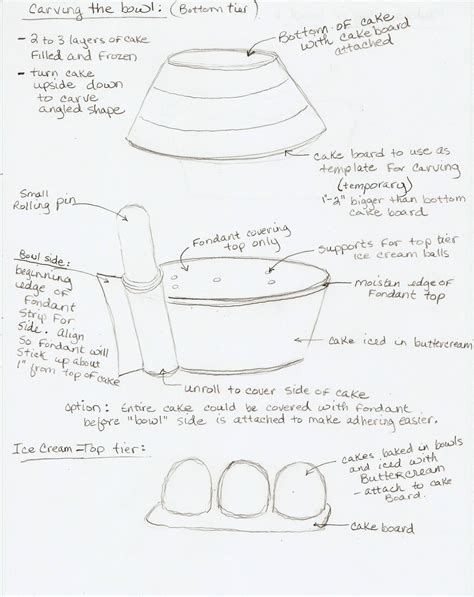 Carving the bowl: (Bottom tier)
- 2 to 3 layers of cake
Filled and Frozen
- turn cake
upside down
to carve
angled shape
Bottom of cake
with cakeboard
attached
cake board to use as
template for carving
(temporary)
1"-2" bigger than bottom
cake board
Small
Rolling pin
Bowl side:
beginning
edge of
Fondant
Strip for
Side. Align
So fondant will
Stick up about
1" from top of cake
Fondant covering
top only
supports for top tier
ice cream balls
moisten edge of
Fondant top
cake iced in buttercream
unroll to cover side of cake
option: Entire cake could be covered with fondant
before "bowl" side is attached to make adhering easier.
Ice Cream=Top tier:
cakes baked in bowls
and iced with
Buttercream
- attach to cake
Board.
cake board